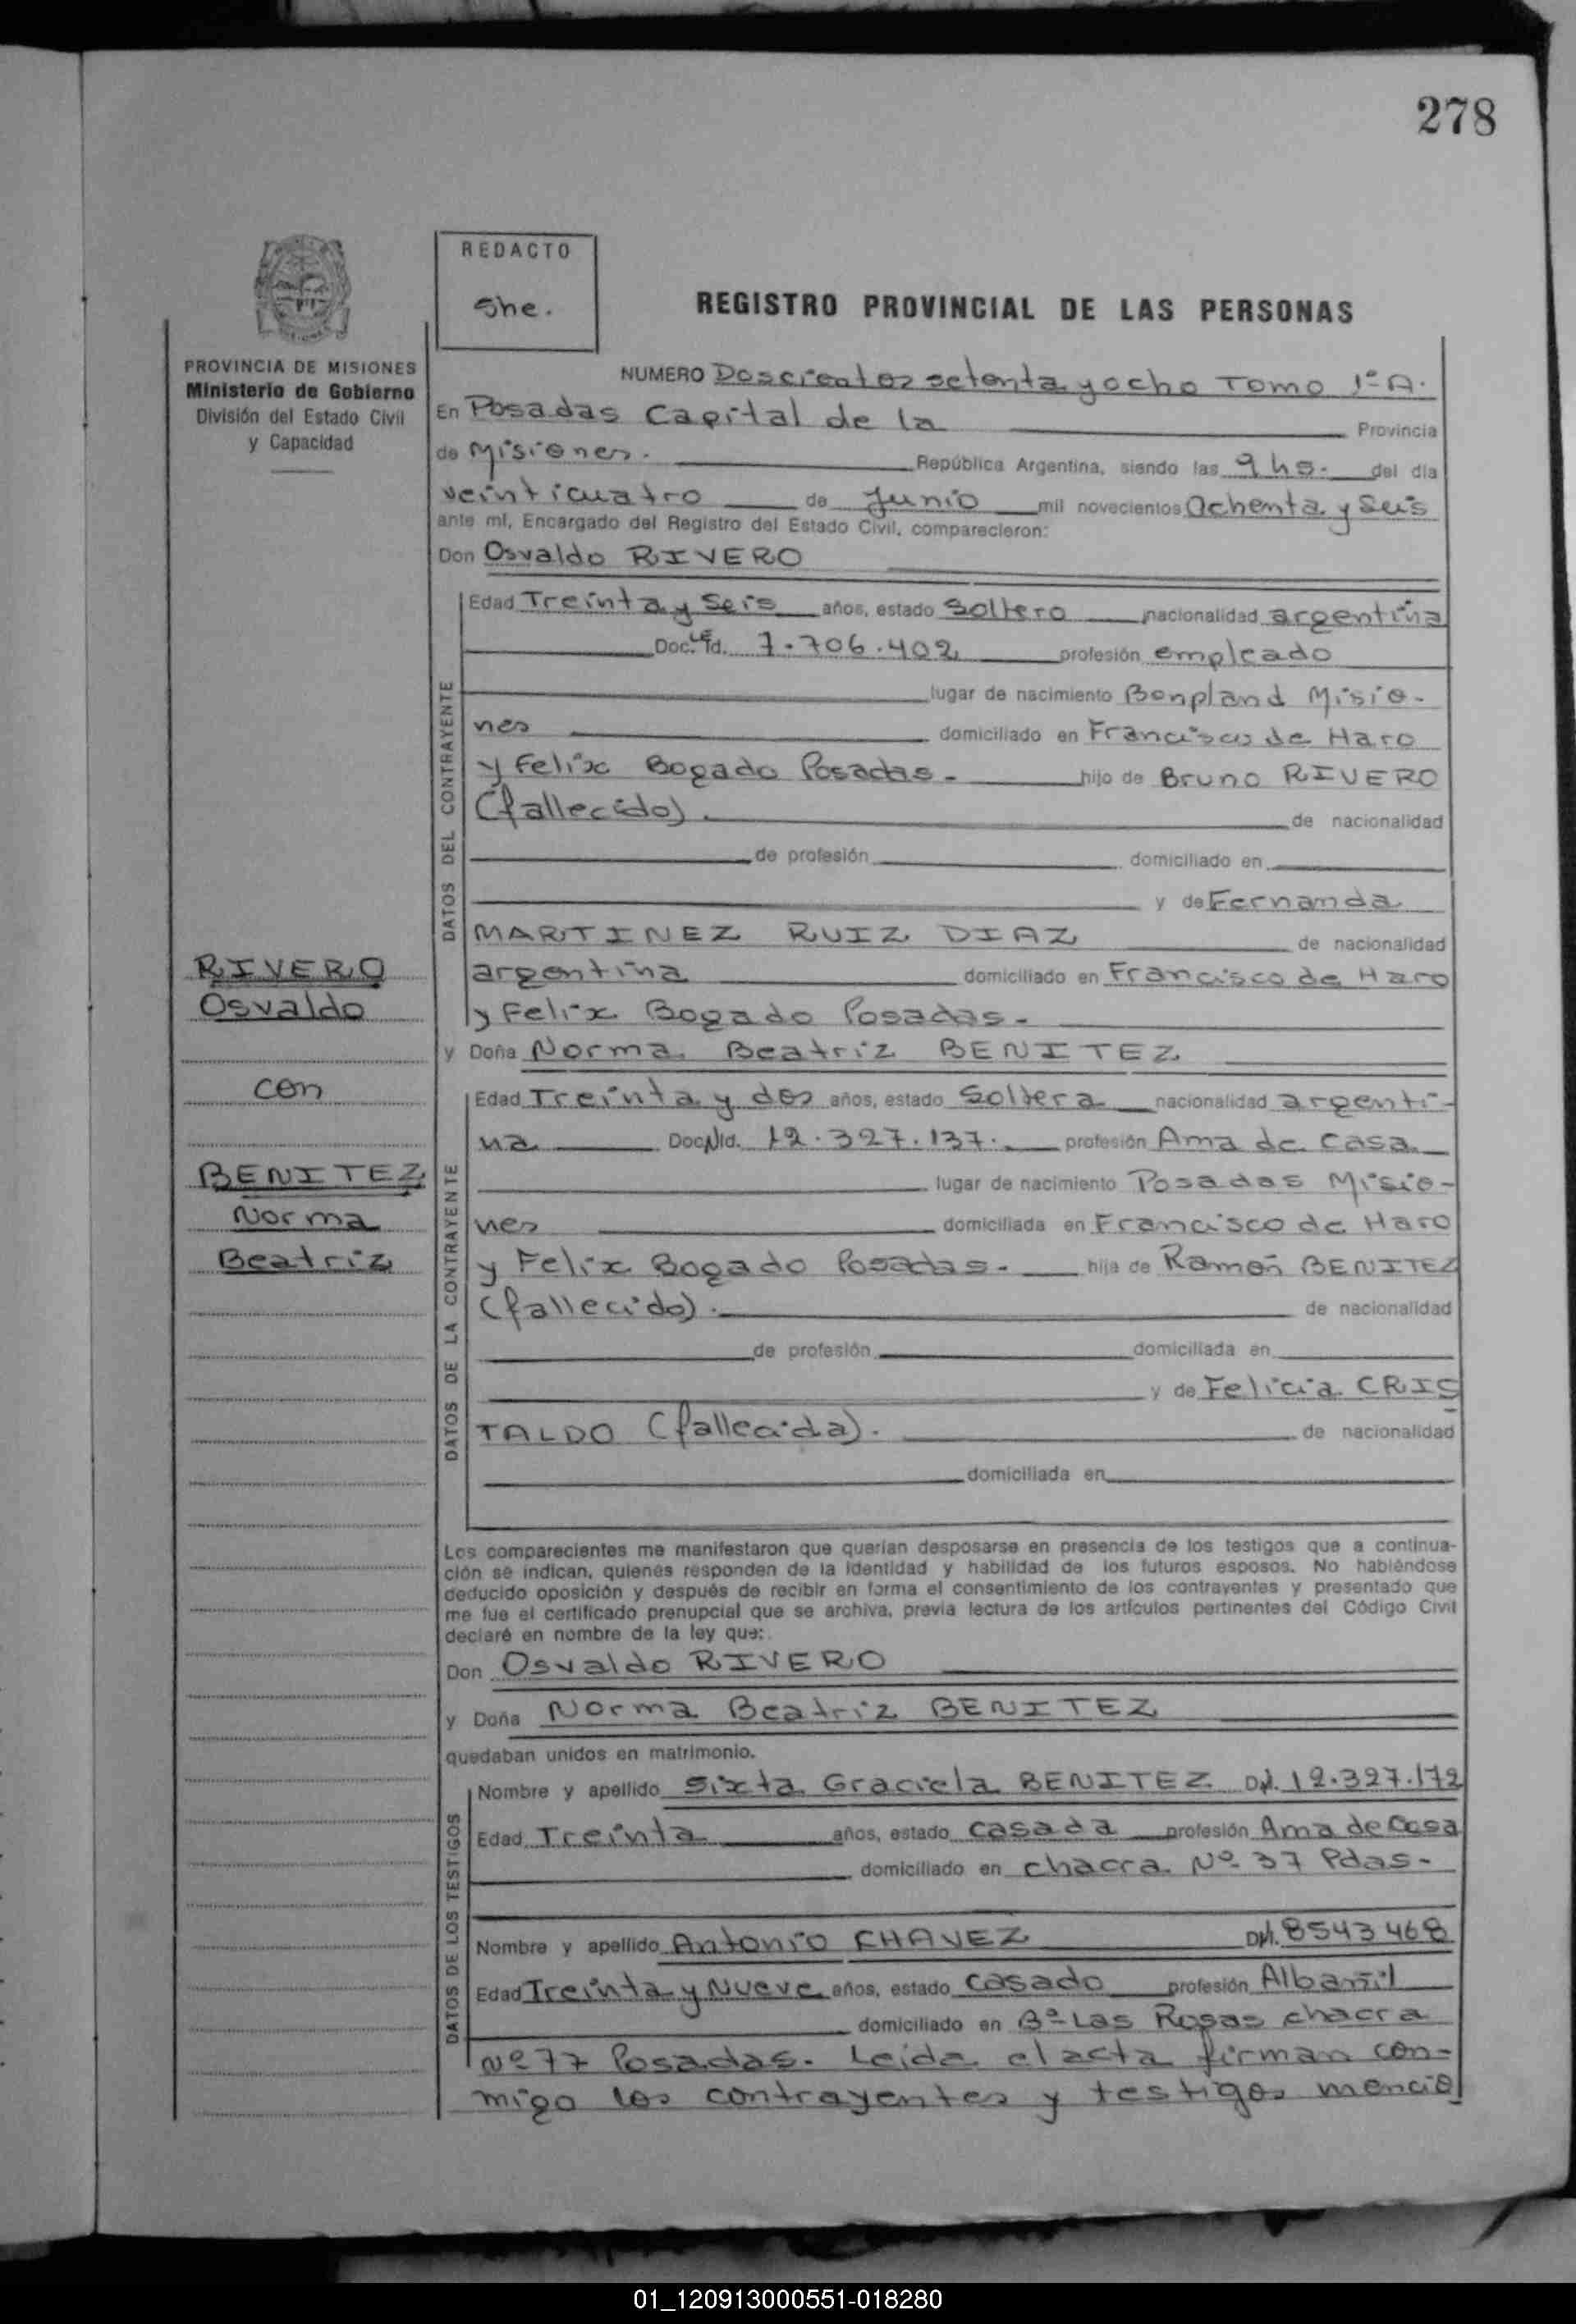 278
REDACTO
She.
REGISTRO PROVINCIAL DE LAS PERSONAS
PROVINCIA DE MISIONES
Ministerio de Gobierno
División del Estado Civil
y Capacidad
NUMERO Doscientos setenta y ocho Tomo 1º A.
En Posadas Capital de la Provincia
de Misiones. República Argentina, siendo las 9 hs. del día
veinticuatro de Junio mil novecientos Ochenta y Seis
ante mí, Encargado del Registro del Estado Civil, comparecieron:
Don Osvaldo RIVERO
DATOS DEL CONTRAYENTE
Edad Treinta y Seis años, estado Soltero nacionalidad argentina
Doc. LE Id. 7.706.402 profesión empleado
lugar de nacimiento Bonpland Misio-
nes domiciliado en Francisco de Haro
y Felix Bogado Posadas. hijo de Bruno RIVERO
(fallecido). de nacionalidad
de profesión domiciliado en
y de Fernanda
MARTINEZ RUIZ DIAZ de nacionalidad
argentina domiciliado en Francisco de Haro
y Felix Bogado Posadas.
y Doña Norma Beatriz BENITEZ
RIVERO
Osvaldo
con
BENITEZ
Norma
Beatriz
DATOS DE LA CONTRAYENTE
Edad Treinta y dos años, estado Soltera nacionalidad argenti-
na DocNId. 12.327.137. profesión Ama de casa
lugar de nacimiento Posadas Misio-
nes domiciliada en Francisco de Haro
y Felix Bogado Posadas. hija de Ramón BENITEZ
(fallecido). de nacionalidad
de profesión domiciliada en
y de Felicia CRIS
TALDO (fallecida). de nacionalidad
domiciliada en
Los comparecientes me manifestaron que querían desposarse en presencia de los testigos que a continua-
ción se indican, quienes responden de la identidad y habilidad de los futuros esposos. No habiéndose
deducido oposición y después de recibir en forma el consentimiento de los contrayentes y presentado que
me fue el certificado prenupcial que se archiva, previa lectura de los artículos pertinentes del Código Civil
declaré en nombre de la ley que:
Don Osvaldo RIVERO
y Doña Norma Beatriz BENITEZ
quedaban unidos en matrimonio.
DATOS DE LOS TESTIGOS
Nombre y apellido Sixta Graciela BENITEZ D.N.I. 12.327.172
Edad Treinta años, estado casada profesión Ama de Casa
domiciliado en chacra Nº 37 Pdas-
Nombre y apellido Antonio CHAVEZ DNI. 8543468
Edad Treinta y Nueve años, estado casado profesión Albañil
domiciliado en Bº Las Rosas chacra
Nº 77 Posadas. Leida el acta firman con-
migo los contrayentes y testigos mencio
01_120913000551-018280